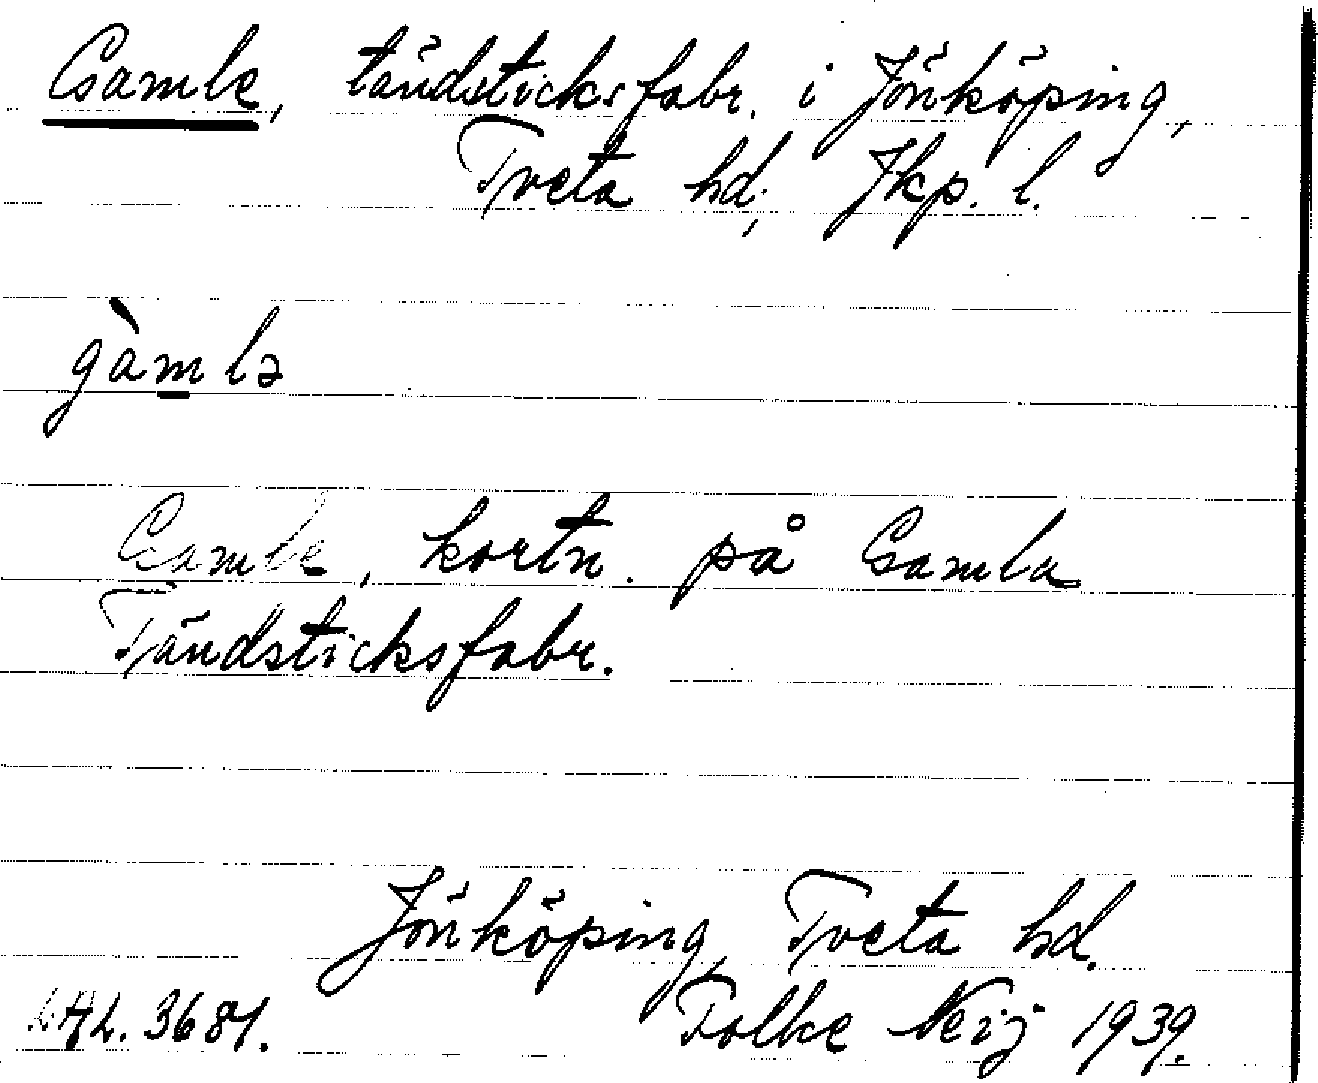 Gamle, tändsticksfabr. i Jönköping,
Tveta hd, Jkp. l.
gàmlə
Gamle, kortn. på Gamla
Tändsticksfabr.
Jönköping, Tveta hd.
3681. Folke Neij 1939.